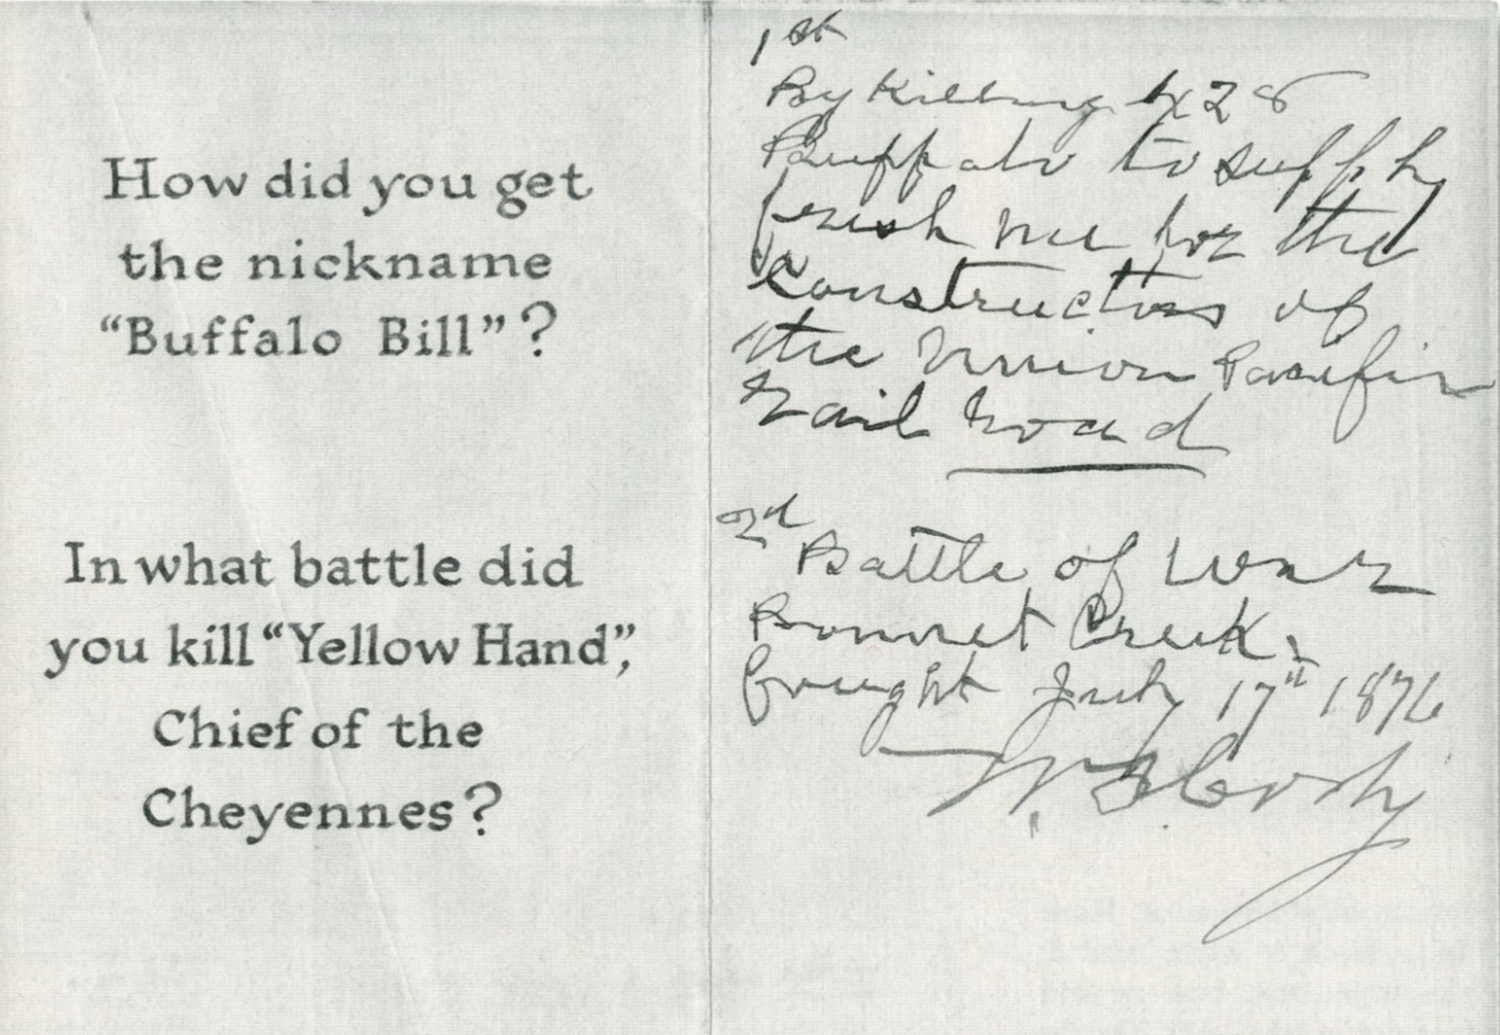 How did you get
the nickname
“Buffalo Bill”?
In what battle did
you kill “Yellow Hand”,
Chief of the
Cheyennes?
1st
By Killing
Buffalo to supply
fresh me for the
Construction of
the Union Pacific
Rail Road
2nd
Battle of War
Bonnet Creek.
fought July 17th 1876
W. F. Cody